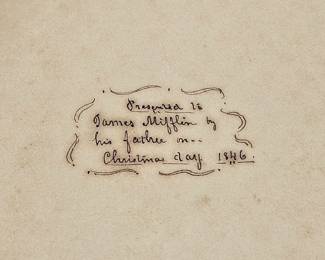 Presented to
James Mifflin by
his father on--
Christmas day 1846.